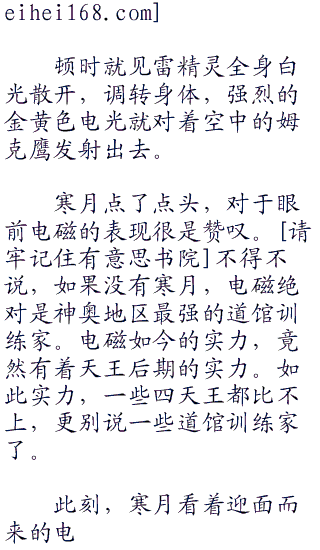 eihei168.com]
顿时就见雷精灵全身白
光散开，调转身体，强烈的
金黄色电光就对着空中的姆
克鹰发射出去。
寒月点了点头，对于眼
前电磁的表现很是赞叹。[请
牢记住有意思书院]不得不
说，如果没有寒月，电磁绝
对是神奥地区最强的道馆训
练家。电磁如今的实力，竟
然有着天王后期的实力。如
此实力，一些四天王都比不
上，更别说一些道馆训练家
了。
此刻，寒月看着迎面而
来的电